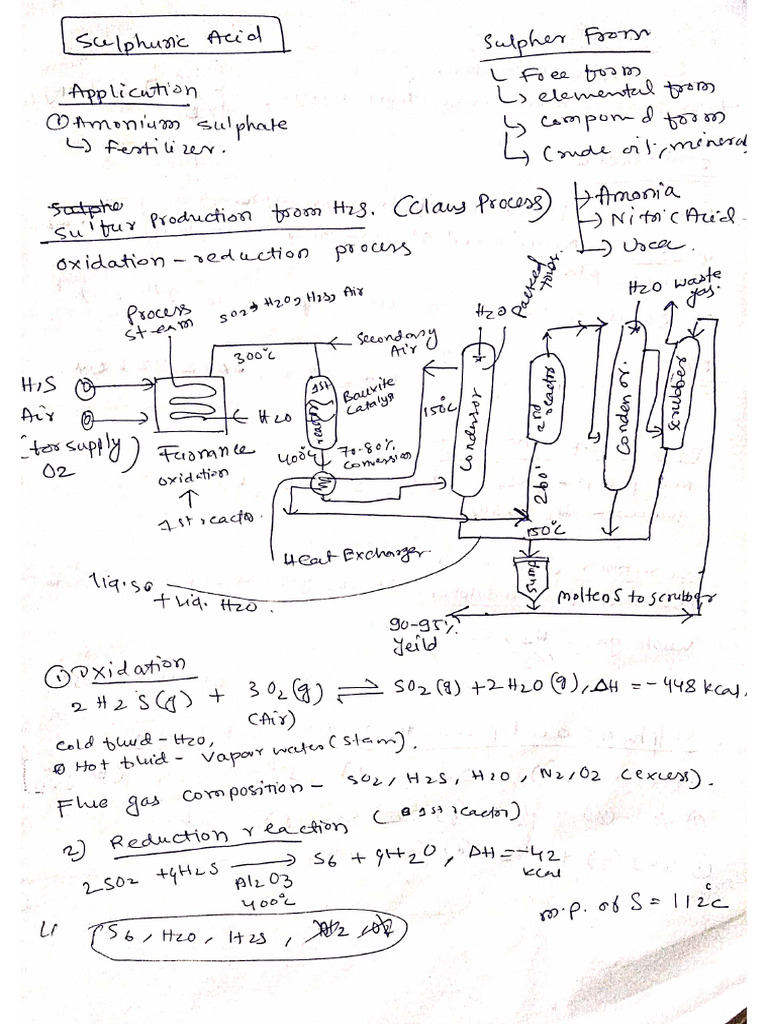 Sulphuric Acid
Sulpher From
↳ Free form
↳ elemental from
↳ compound form
↳ Crude oil, mineral
Application
① Amonium sulphate
↳ fertilizer.
Sulfur Production from H2S. (Claus Process)
→ Amonia
→ Nitric Acid
→ Urea.
oxidation - reduction process
Process steam
SO2, H2O, H2S, Air
Secondary Air
300°C
H2S
Air
(for supply) O2
H2O
Fuorance
oxidation
↑
1st reactor.
1st reactor
Bauxite Catalys
400°C
70-80% conversion
Heat Exchanger
150°C
H2O
Packed tower.
Condensor
2nd reactor
260°
150°C
H2O
waste gas.
Condensor.
scrubber
sump
molten S to scrubber
90-95% Yeild
liq. SO
+ Liq. H2O.
① Oxidation
2H2S(g) + 3O2(g) ⇌ SO2(g) + 2H2O(g), ΔH = -448 kcal.
(Air)
Cold fluid - H2O,
Hot fluid - Vapour water (stam).
Flue gas composition - SO2, H2S, H2O, N2, O2 (excess).
(1st reactor)
2) Reduction reaction
2SO2 + 4H2S → S6 + 4H2O, ΔH = -42 kcal
Al2O3
400°C
m.p. of S = 112°C
S6, H2O, H2S,